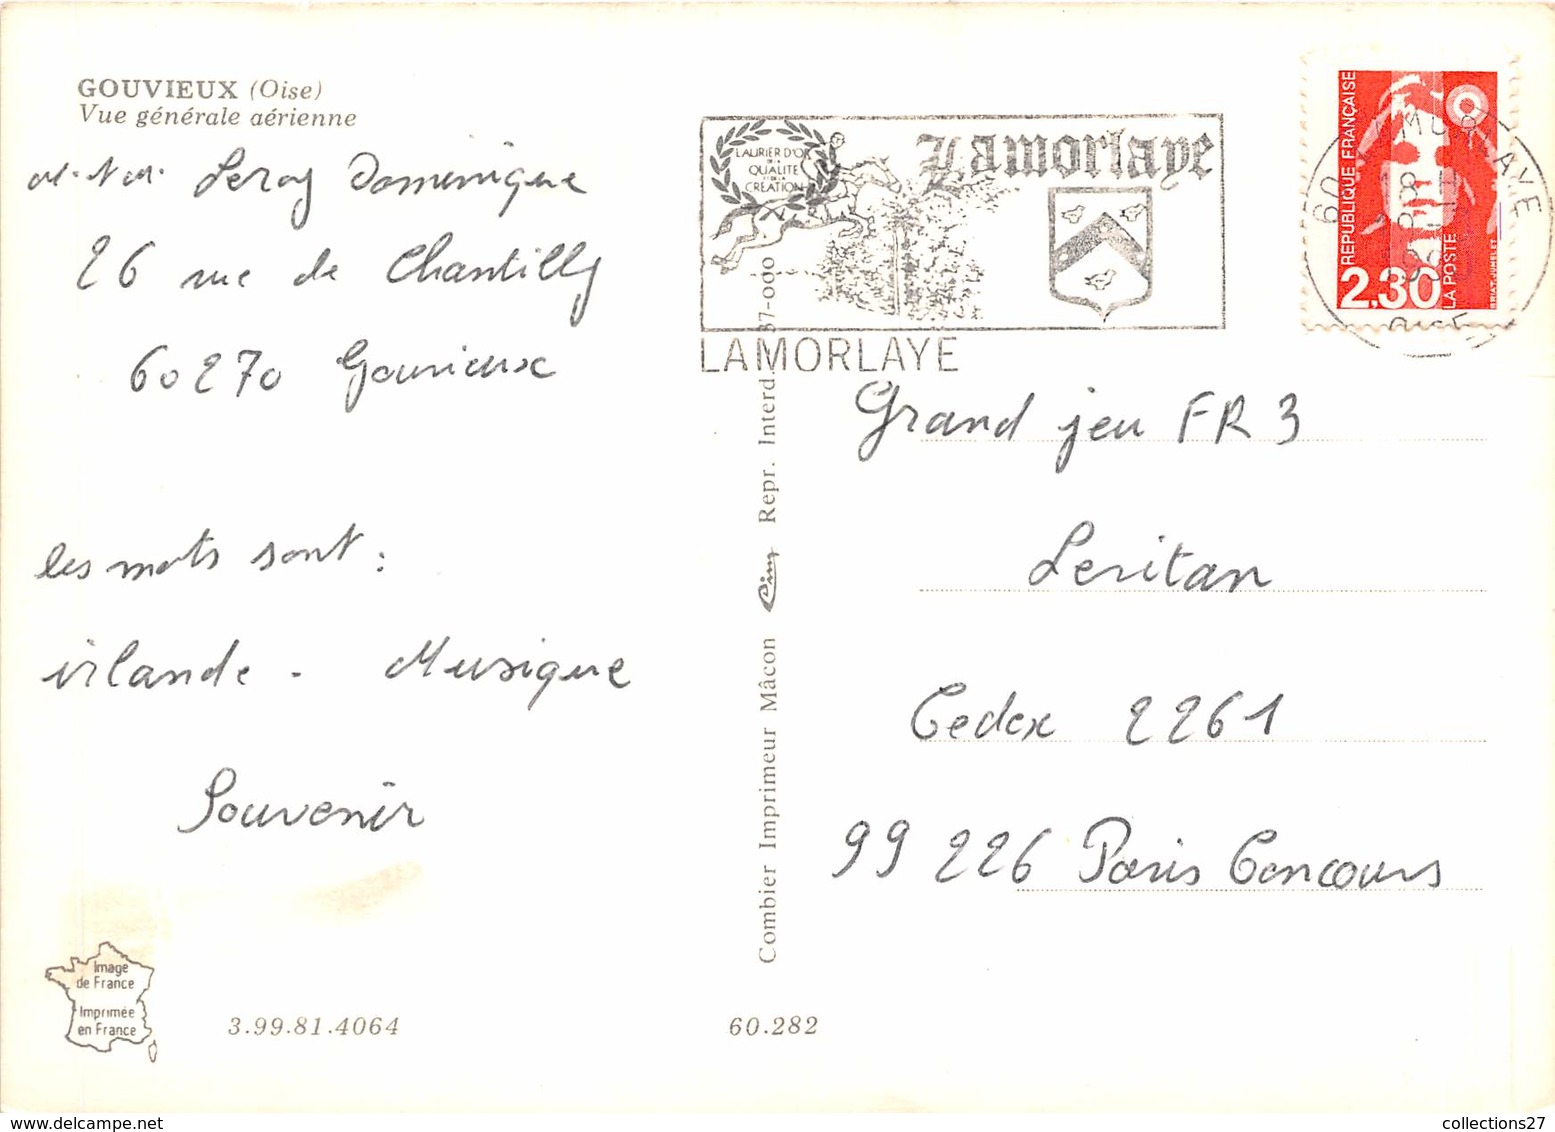 GOUVIEUX (Oise)
Vue générale aérienne
Leroy Dominique
26 rue de Chantilly
60270 Gouvieux
les mots sont :
irlande - Musique
Souvenir
Image
de France
Imprimée
en France
3.99.81.4064
60.282
Combier Imprimeur Mâcon Cim Repr. Interd. 37-000
LAURIER D'OR
DE LA
QUALITÉ
ET DE LA
CRÉATION
Lamorlaye
LAMORLAYE
RÉPUBLIQUE FRANÇAISE
2,30
LA POSTE
BRIAT-JUMELET
60 LAMORLAYE
OISE
Grand jeu FR 3
Leritan
Cedex 2261
99 226 Paris Concours
collections27